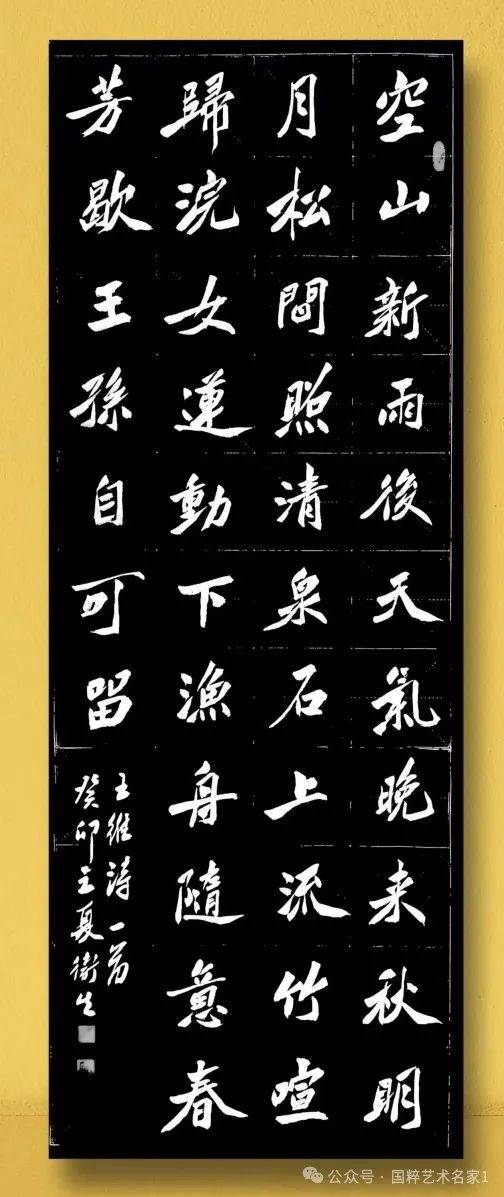 空山新雨後天氣晚来秋明
月松間照清泉石上流竹喧
歸浣女蓮動下漁舟隨意春
芳歇王孫自可留
王維詩一首
癸卯之夏衛生
公众号 · 国粹艺术名家1